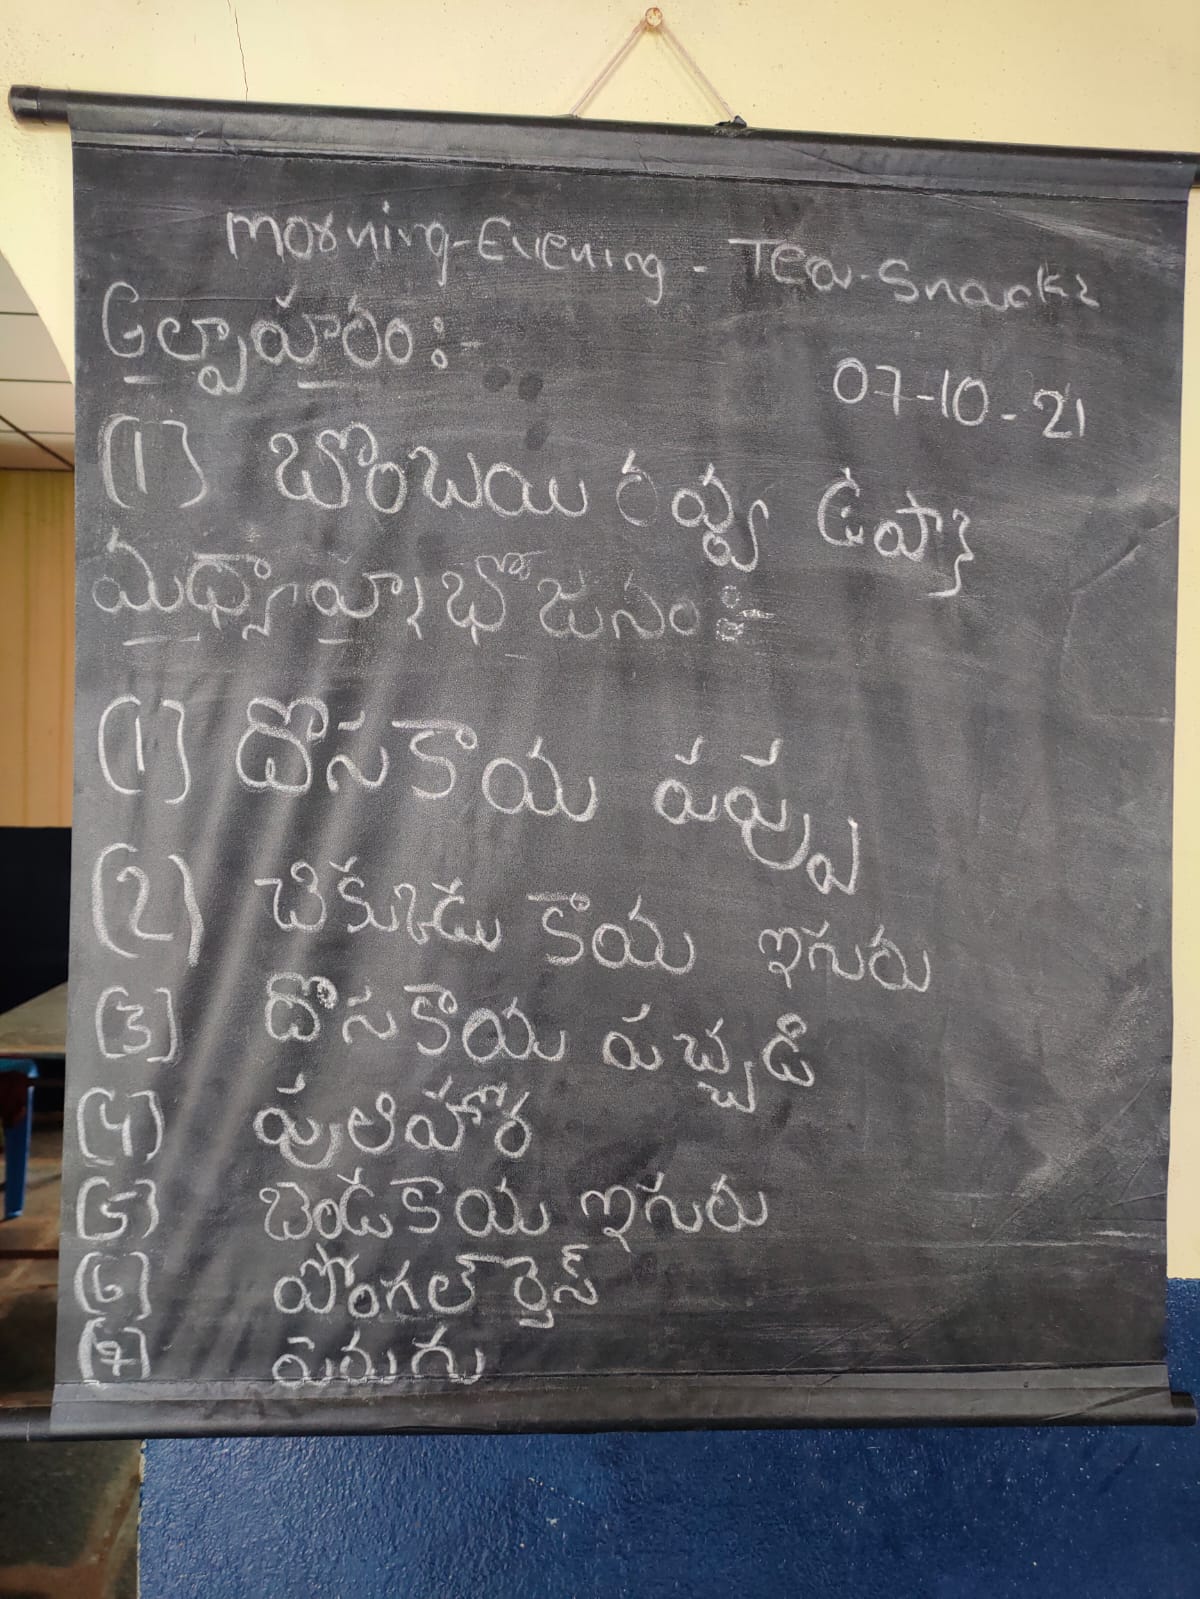 Morning-Evening - Tea-Snacks
అల్పాహారం:-
07-10-21
(1) బొంబయి రవ్వ ఉప్మా
మధ్యాహ్న భోజనం:-
(1) దొసకాయ పప్పు
(2) చికుక్డు కాయ ఇగురు
(3) దొసకాయ పచ్చడి
(4) పులిహోర
(5) బెండకాయ ఇగురు
(6) పోంగల్ రైస్
(7) పెరుగు